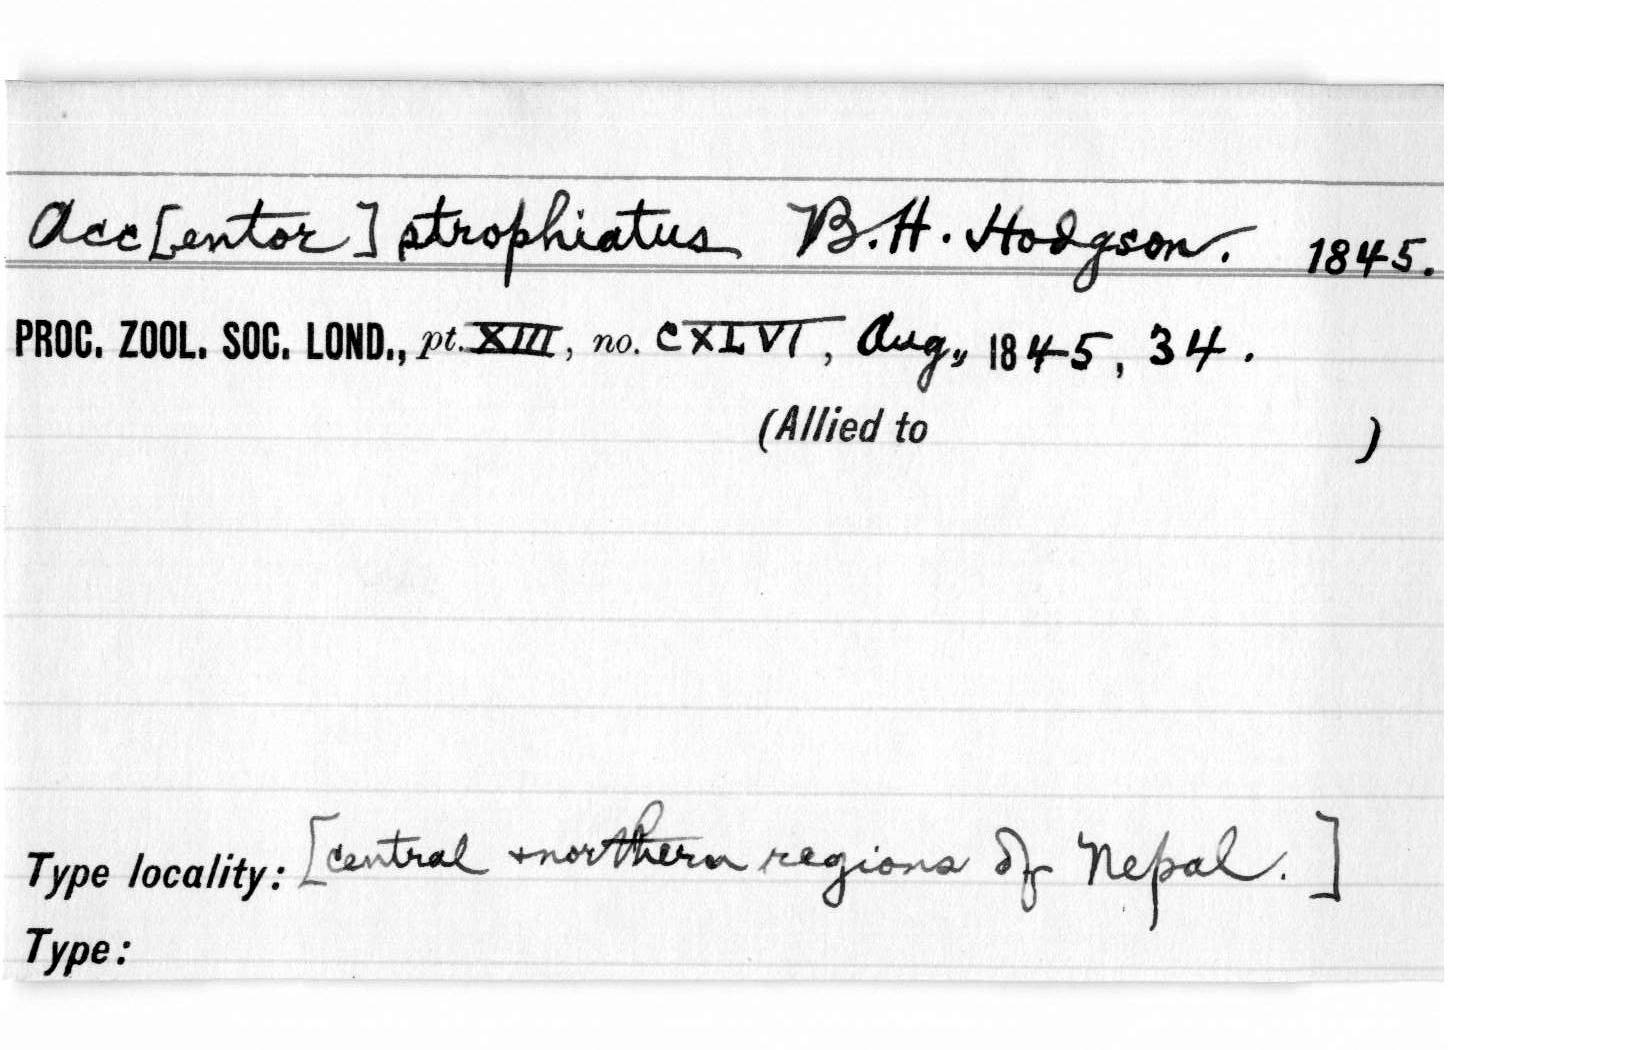 Acc[entor] strophiatus B.H. Hodgson. 1845.
PROC. ZOOL. SOC. LOND., pt. XIII, no. CXLVI, Aug., 1845, 34.
(Allied to )
Type locality: [central + northern regions of Nepal.]
Type: